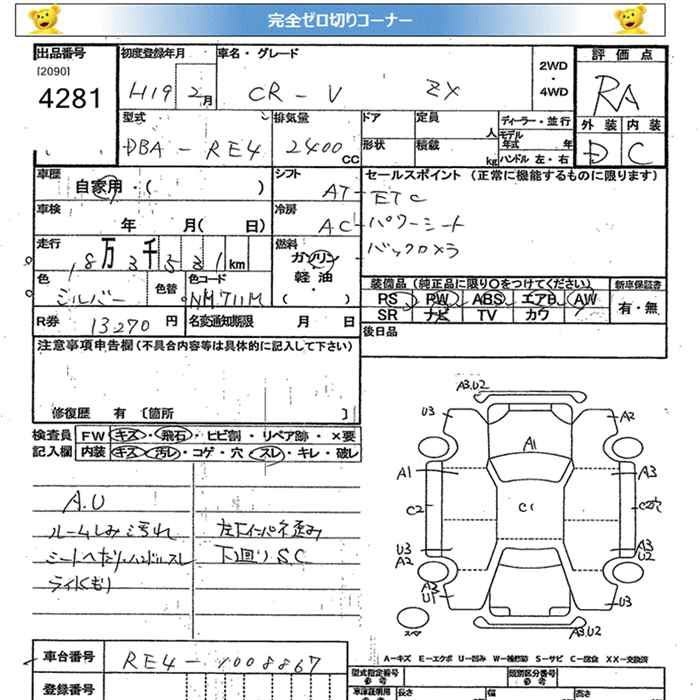 完全ゼロ切りコーナー
出品番号 初度登録年月 車名・グレード 2WD・4WD 評価点
[2090]
4281 H19 2月 CR-V ZX RA
型式 排気量 ドア 定員 人 ディーラー・並行 外装 内装
DBA-RE4 2400CC 形状 積載 kg モデル年式 年 ハンドル 左・右 D C
車歴 自家用・( ) シフト AT セールスポイント (正常に機能するものに限ります)
ETC
車検 年 月( 日) 冷房 AC パワーシート
バックカメラ
走行 18万3千531km 燃料 ガソリン 軽油・( )
色 シルバー 色替 色コード NM711M
装備品 (純正品に限り〇をつけてください) 新車保証書
PS PW ABS エアB AW 有・無
SR ナビ TV カワ
R券 13270円 名変通知期限 月 日
後日品
注意事項申告欄(不具合内容等は具体的に記入して下さい)
修復歴 有 〔箇所 〕
検査員記入欄 FW キズ・飛石・ヒビ割・リペア跡・×要
内装 キズ・汚レ・コゲ・穴・スレ・キレ・破レ
A.U
ルームしみ汚れ 左下インパネ歪み
シートへたり・ハンドルスレ 下廻りS.C
ライトくもり
A3.U2
U3 A2
A1
A1 A3
C2 C1 C2穴
U3 A3
A2 U2
A3
U1 U3
スペア A3.U2
A-キズ E-エクボ U-凹み W-補修跡 S-サビ C-腐食 XX-交換済
車台番号 RE4-1008867
型式指定番号 参考 類別区分番号 参考
登録番号 車庫証明用参考 長さ 幅 高さ